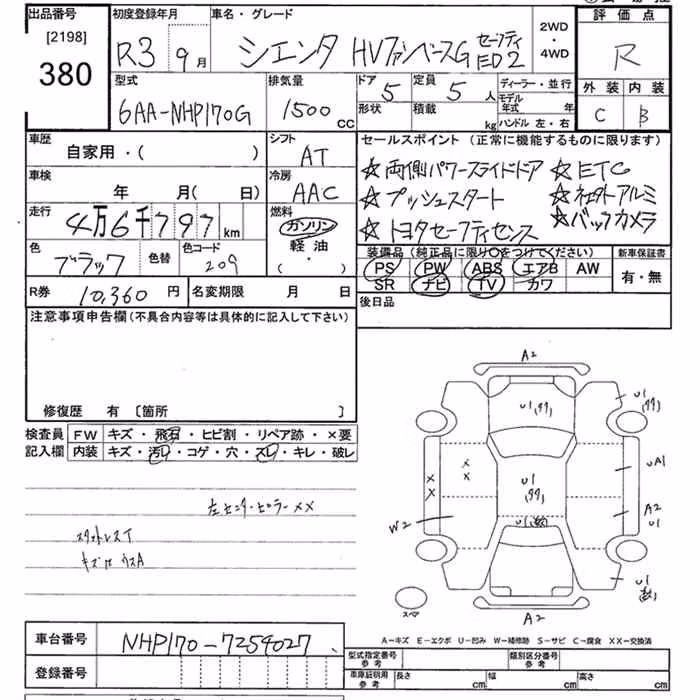 出品番号 初度登録年月 車名・グレード 2WD・4WD 評価点
[2198]
380
R3 9月 シエンタ HVファンベースG セーフティED2 R
型式 排気量 ドア 定員 ディーラー・並行
6AA-NHP170G 1500cc 5 5人 モデル年式 年
形状 積載 kg ハンドル 左・右
外装 内装
C B
車歴 シフト セールスポイント(正常に機能するものに限ります)
自家用・( ) AT
☆両側パワースライドドア ☆ETC
車検 冷房
年 月( 日) AAC
☆プッシュスタート ☆社外アルミ
走行 燃料
4万6千797km ガソリン
軽油
( ・ )
☆トヨタセーフティセンス ☆バックカメラ
色 色替 色コード
ブラック 209
装備品(純正品に限り○をつけてください) 新車保証書
PS PW ABS エアB AW 有・無
SR ナビ TV カワ
R券 10,360円 名変期限 月 日
後日品
注意事項申告欄(不具合内容等は具体的に記入して下さい)
修復歴 有 [箇所 ]
検査員 FW キズ・飛石・ヒビ割・リペア跡・×要
記入欄 内装 キズ・汚レ・コゲ・穴・スレ・キレ・破レ
左センターピラーXX
スタットレスT
キズ
A2
U1
U1
UA1
U1
XX
XX
A2
U1
W2
U1
U1
スペア
A2
A-キズ E-エクボ U-凹み W-補修跡 S-サビ C-腐食 XX-交換済
車台番号 NHP170-7254027
登録番号
型式指定番号 参考 類別区分番号 参考
車庫証明用 参考 長さ cm 幅 cm 高さ cm